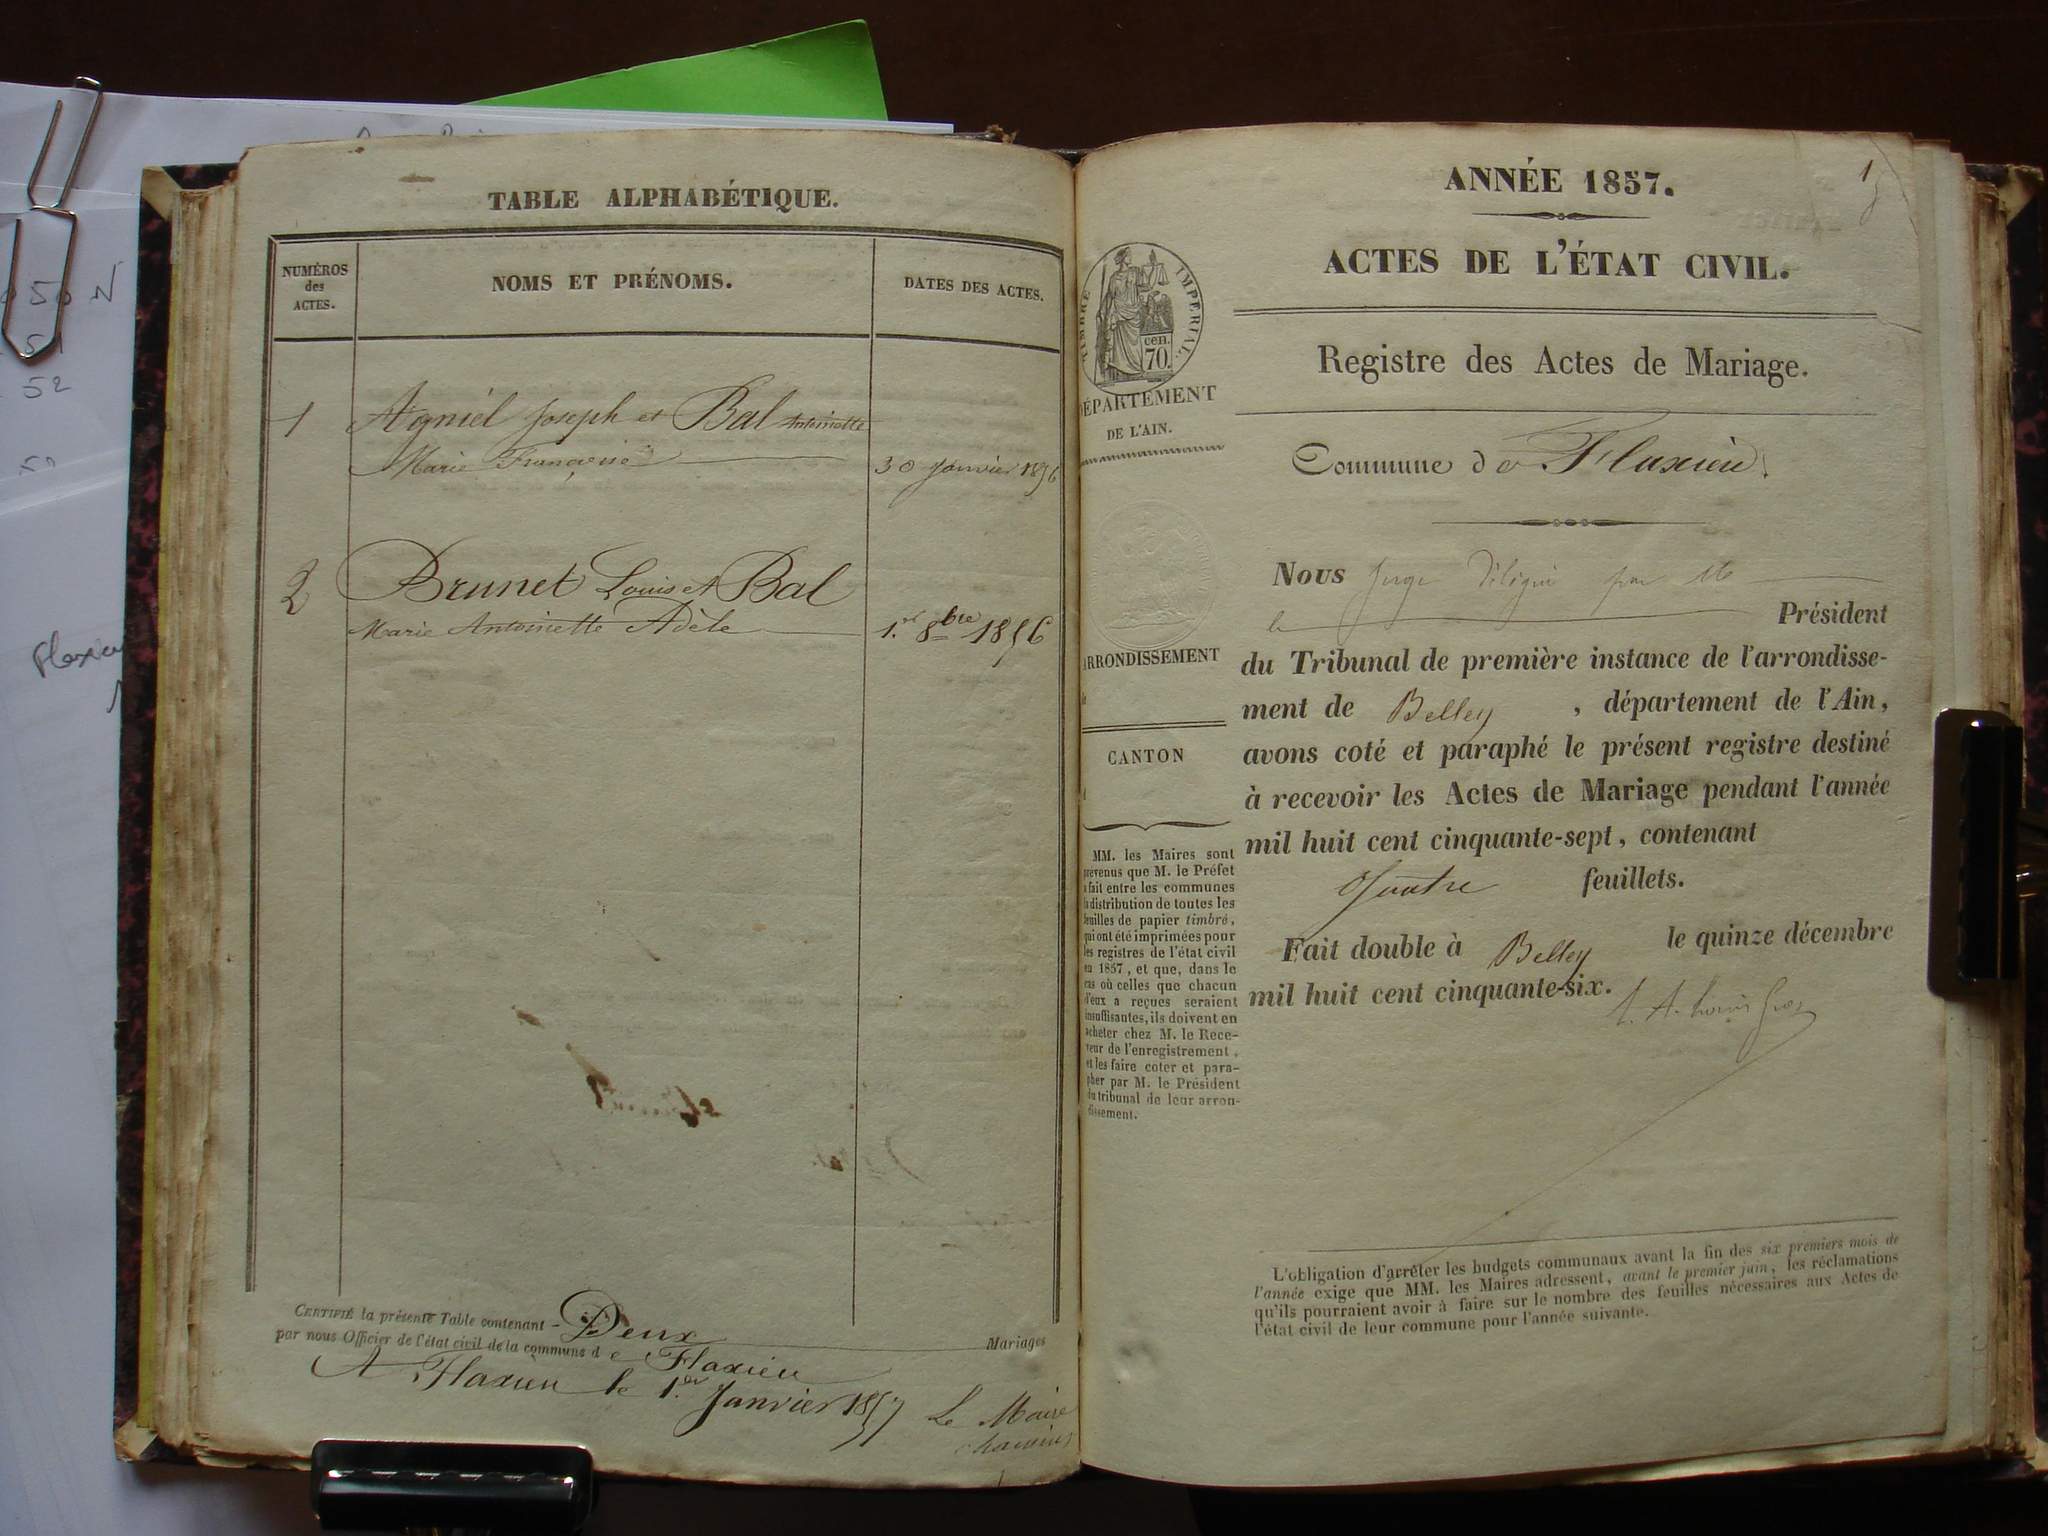 TABLE ALPHABÉTIQUE.
NUMÉROS
des
ACTES.
NOMS ET PRÉNOMS.
DATES DES ACTES.
1 Agniel Joseph et Bal Antoinette
Marie Françoise 30 Janvier 1856
2 Brunet Louis et Bal
Marie Antoinette Adèle 1.er 8bre 1856
CERTIFIÉ la présente Table contenant Deux Mariages
par nous Officier de l'état civil de la commune de Flaxieu
A Flaxieu le 1.er Janvier 1857 Le Maire
1
ANNÉE 1857.
ACTES DE L'ÉTAT CIVIL.
Registre des Actes de Mariage.
Commune de Flaxieu
TIMBRE IMPERIAL
cen.
70.
DÉPARTEMENT
DE L'AIN.
ARRONDISSEMENT
CANTON
MM. les Maires sont
prévenus que M. le Préfet
a fait entre les communes
la distribution de toutes les
feuilles de papier timbré,
qui ont été imprimées pour
les registres de l'état civil
en 1857, et que, dans le
cas où celles que chacun
d'eux a reçues seraient
insuffisantes, ils doivent en
acheter chez M. le Rece-
veur de l'enregistrement,
et les faire coter et para-
pher par M. le Président
du tribunal de leur arron-
dissement.
Nous Juge Délégué par Mr
le Président
du Tribunal de première instance de l'arrondisse-
ment de Belley, département de l'Ain,
avons coté et paraphé le présent registre destiné
à recevoir les Actes de Mariage pendant l'année
mil huit cent cinquante-sept, contenant
Quatre feuillets.
Fait double à Belley le quinze décembre
mil huit cent cinquante-six.
L'obligation d'arrêter les budgets communaux avant la fin des six premiers mois de
l'année exige que MM. les Maires adressent, avant le premier juin, les réclamations
qu'ils pourraient avoir à faire sur le nombre des feuilles nécessaires aux Actes de
l'état civil de leur commune pour l'année suivante.
50 N
52